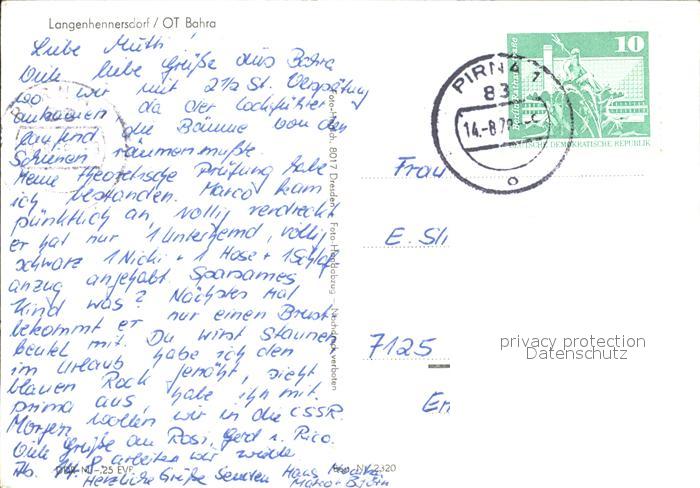 Langenhennersdorf / OT Bahra
Liebe Mutti!
Viele liebe Grüße aus Bahra
wo wir mit 2½ St. Verspätung
ankamen, da der Lochführer
laufend die Bäume von den
Schienen räumen mußte.
Meine theoretische Prüfung habe
ich bestanden. Marco kam
pünktlich an, völlig verdreckt
er hat nur 1 Unterhemd, völlig
schwarz 1 Nicki + 1 Hose + 1 Schlaf-
anzug angehabt. Sparsames
Kind was? Nächstes Mal
bekommt er nur einen Brust-
beutel mit. Du wirst staunen
im Urlaub habe ich den
blauen Rock genäht, sieht
prima aus, habe ihn mit.
Morgen wollen wir in die CSSR.
Viele Grüße an Rosi, Gerd u. Rico.
Ab 14.8 arbeiten wir wieder
Herzliche Grüße senden Hans
Marco + Björn
25 EVP
2320
8017 Dresden
Nachdruck verboten
10
DEUTSCHE DEMOKRATISCHE REPUBLIK
PIRNA 1
83
14.-8.78
Frau
E. Sli
7125
En
privacy protection
Datenschutz